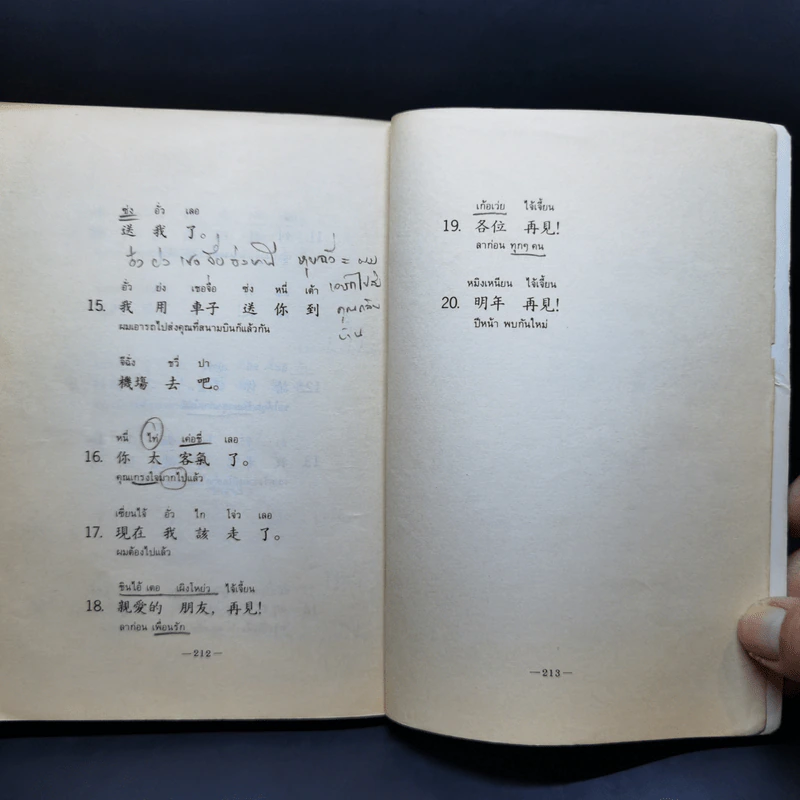 ซ่ง อั่ว เลอ
送 我 了。
อั่ว ย่ง เชอ จื่อ ซ่ง หนี่
อั่ว ย่ง เชอจื่อ ซ่ง หนี่ เต้า
15. 我 用 車子 送 你 到
ผมเอารถไปส่งคุณที่สนามบินก็แล้วกัน
จีฉั่ง ชวี่ ปา
機場 去 吧。
หนี่ ไท่ เค่อชี่ เลอ
16. 你 太 客氣 了。
คุณเกรงใจมากไปแล้ว
เซี่ยนไจ้ อั่ว ไก โจ่ว เลอ
17. 現在 我 該 走 了。
ผมต้องไปแล้ว
ชินไอ้ เตอ เผิงโหย่ว ไจ้เจี้ยน
18. 親愛的 朋友, 再見!
ลาก่อน เพื่อนรัก
—212—
เก้อเว่ย ไจ้เจี้ยน
19. 各位 再見!
ลาก่อน ทุกๆ คน
หมิงเหนียน ไจ้เจี้ยน
20. 明年 再見!
ปีหน้า พบกันใหม่
—213—